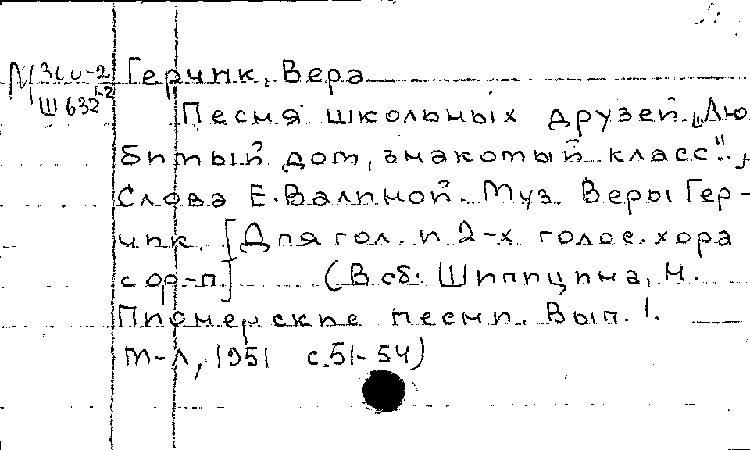 М 31и-2 Герчик, Вера
Ш 632
Песня школьных друзей. „Лю
бимый дом, знакомый класс".,
Слова Е. Валиной. Муз. Веры Гер-
чик. [Для гол. и 2-х голос. хора
с ор-п.] (В сб. Шипицина, Н.
Пионерские песни. Вып. 1.
М-Л, 1951 с. 51-54)